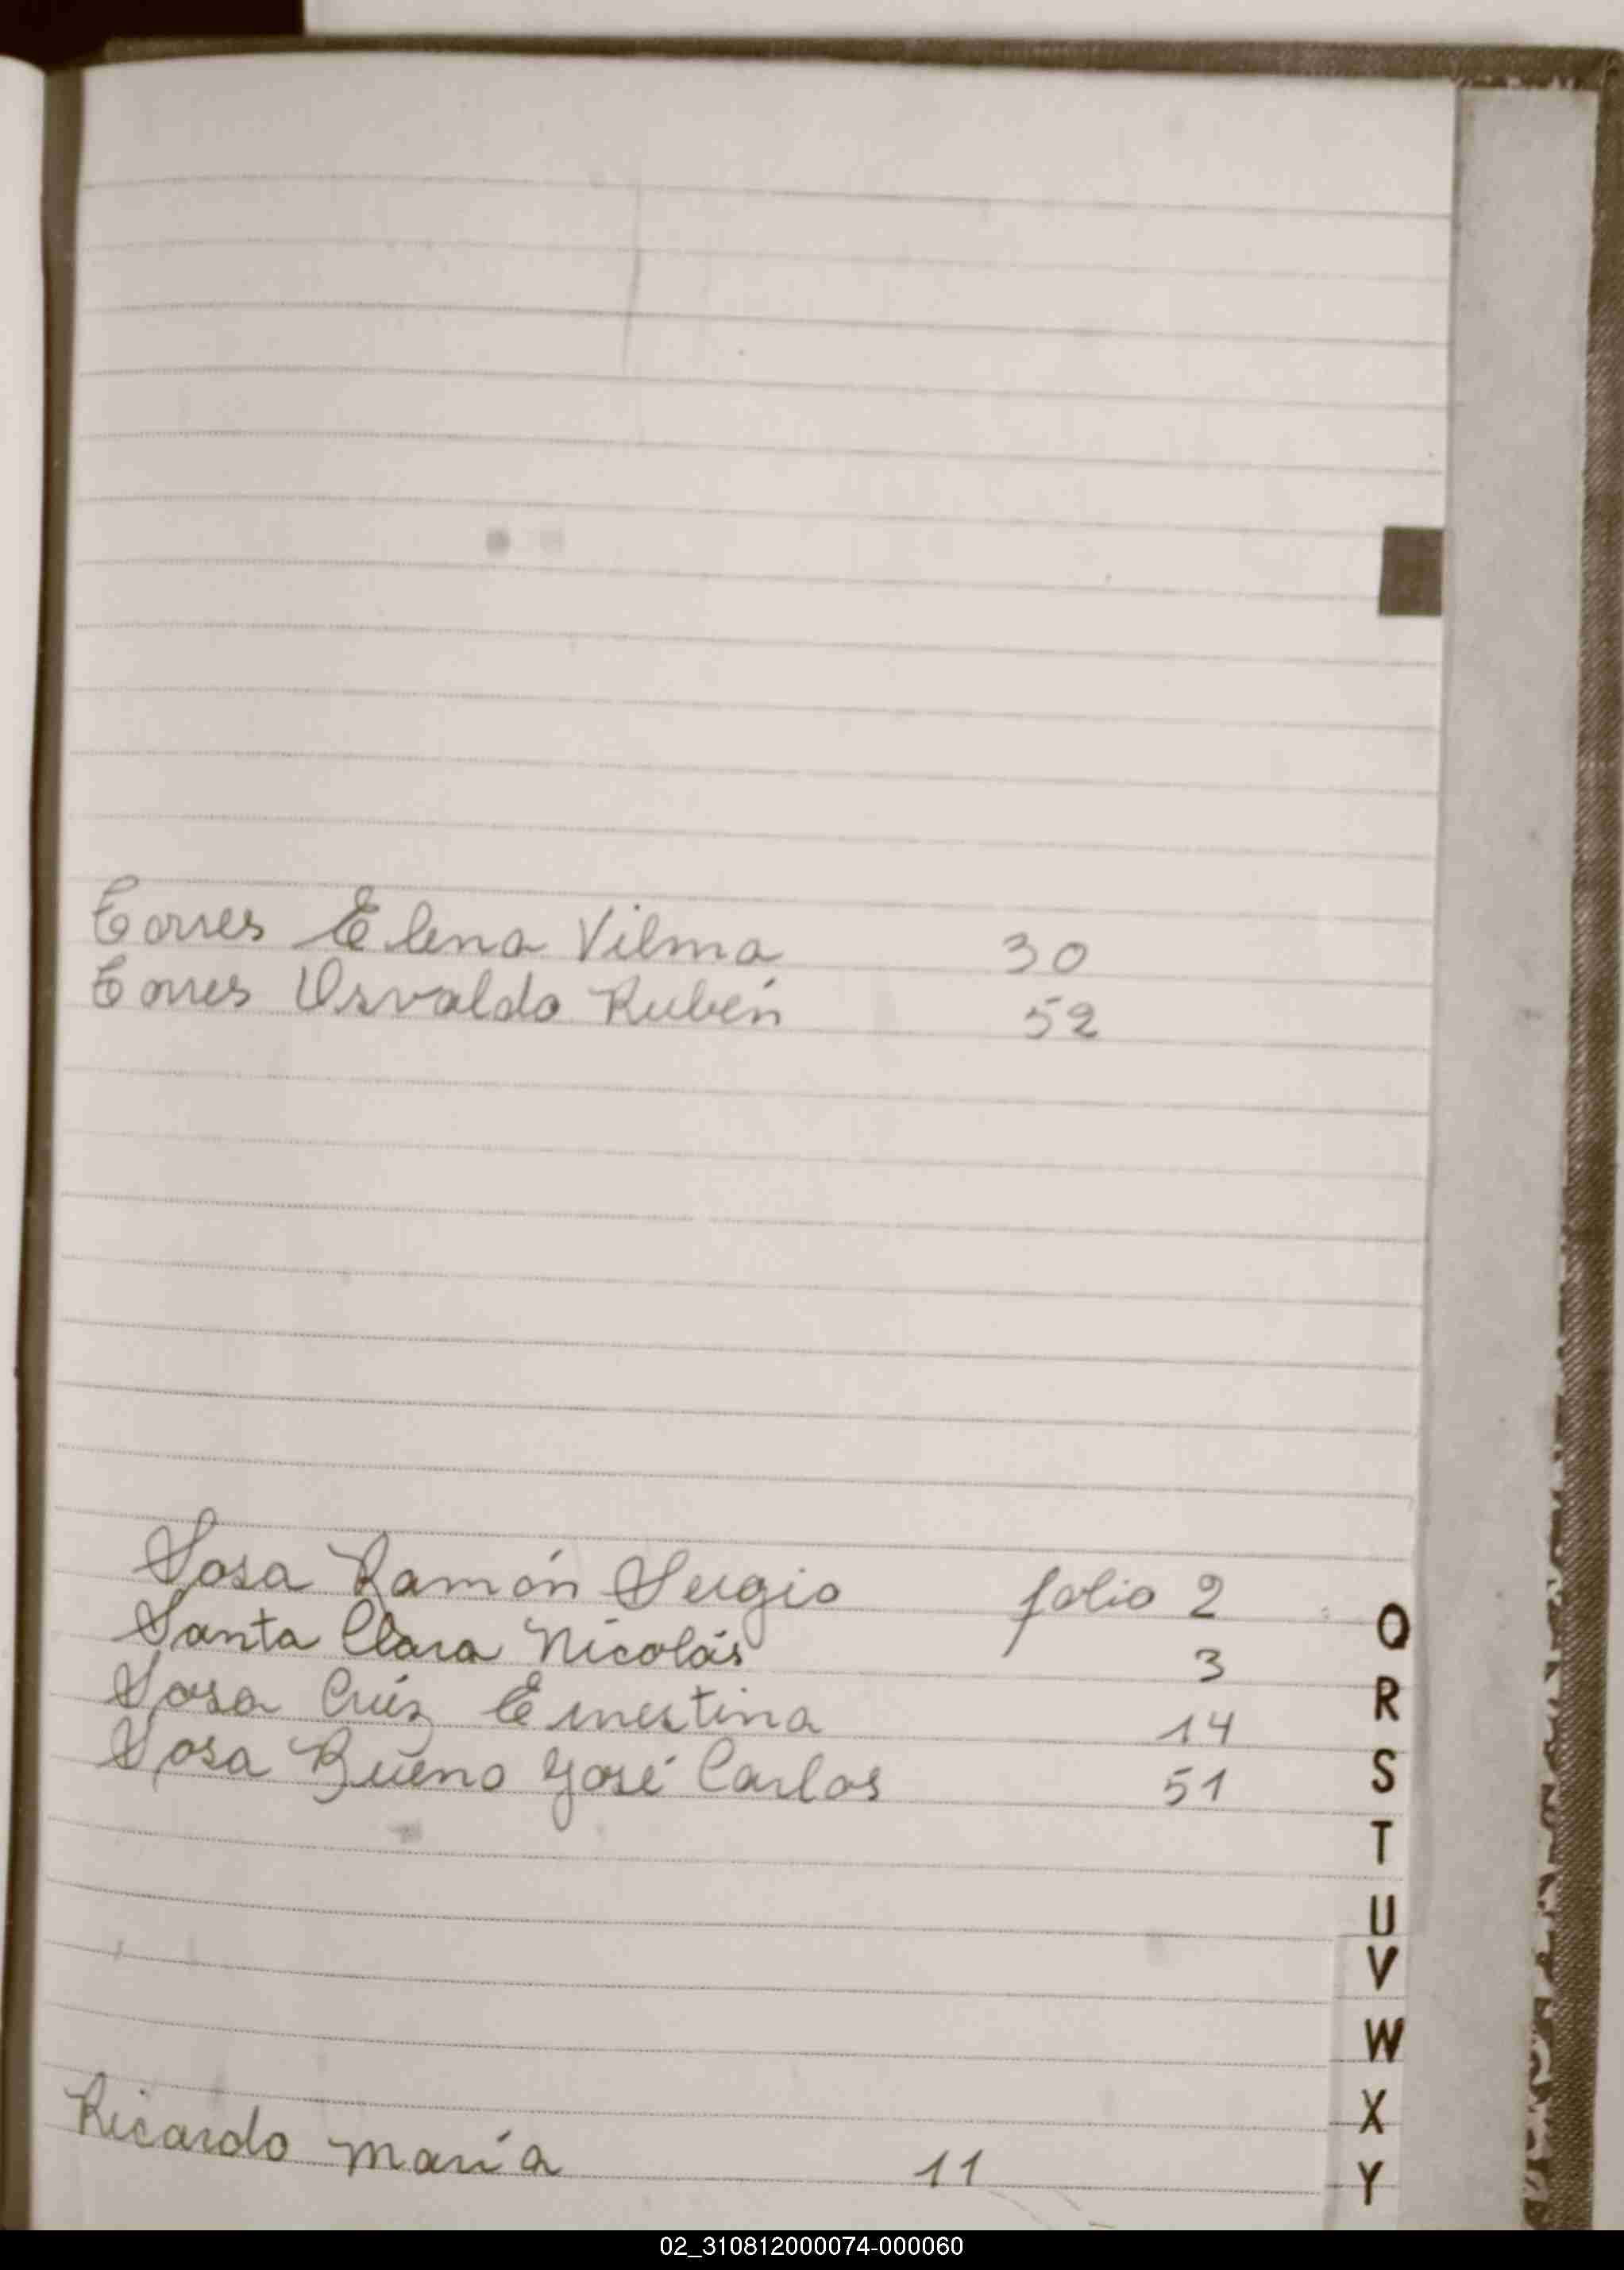 Torres Elena Vilma 30
Torres Osvaldo Rubén 52
Sosa Ramón Sergio folio 2
Santa Clara Nicolás 3
Sosa Cruz Ernestina 14
Sosa Bueno José Carlos 51
Ricardo María 11
Q
R
S
T
U
V
W
X
Y
02_310812000074-000060